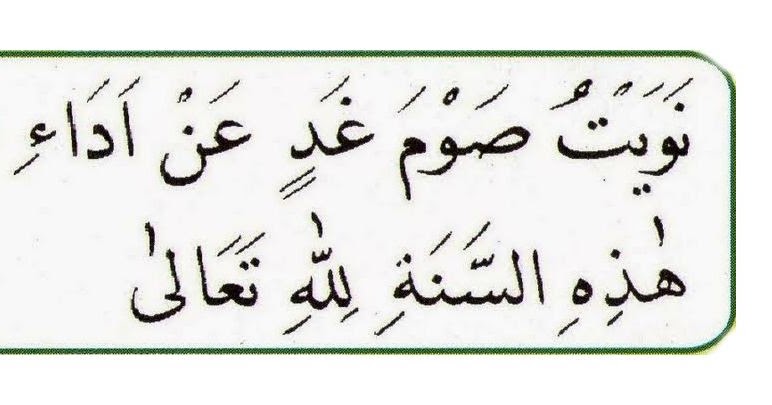 نَوَيْتُ صَوْمَ غَدٍ عَنْ اَدَاءِ
هٰذِهِ السَّنَةِ لِلّٰهِ تَعَالٰى